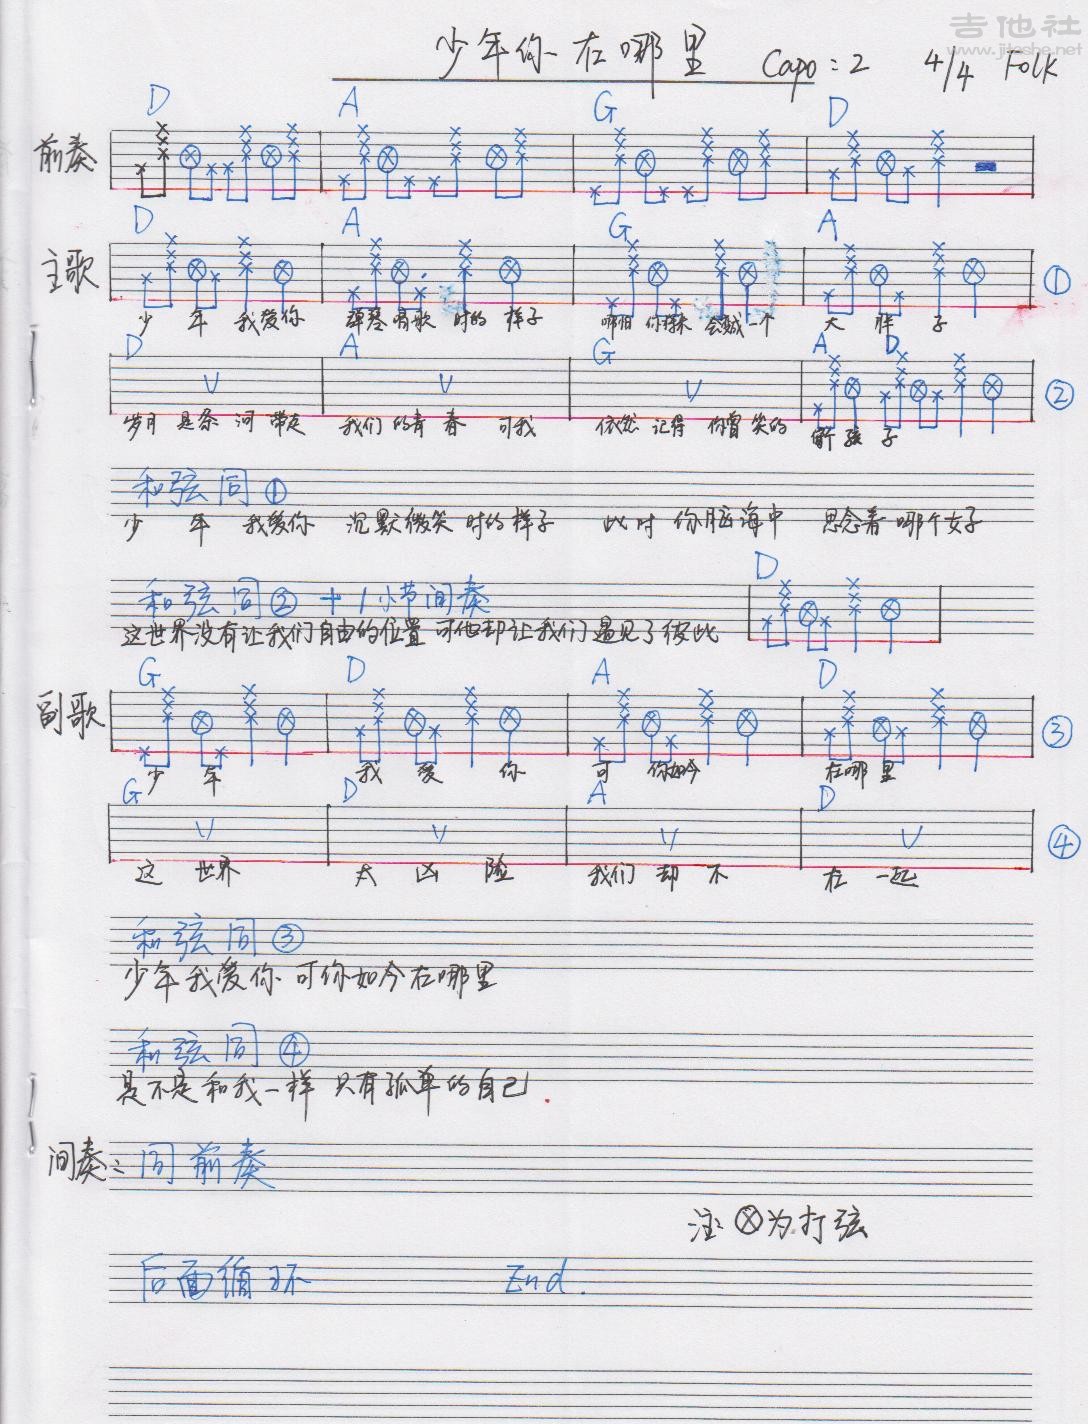 吉他社
www.jitashe.net
少年你在哪里 Capo:2 4/4 Folk
D A G D
前奏
D A G A
主歌 ①
少 年 我爱你 弹琴唱歌 时的 样子 哪怕 你将来 会贼一个 大 胖 子
D A G A D
V V V ②
岁月 是条 河 带走 我们 的青 春 可我 依然 记得 你曾 笑的 像孩子
和弦同①
少 年 我爱你 沉默微笑 时的样子 此时 你脑海中 思念着 哪个女子
D
和弦同② +1小节间奏
这世界没有让我们自由的位置 可他却让我们遇见了彼此
G D A D
副歌 ③
少 年 我 爱 你 可 你如今 在哪里
G D A D
V V V V ④
这 世界 太 凶 险 我们 却 不 在 一起
和弦同③
少年我爱你 可你如今在哪里
和弦同④
是不是和我一样 只有孤单的自己.
间奏: 同前奏
注: ⊗为打弦
后面循环 End.